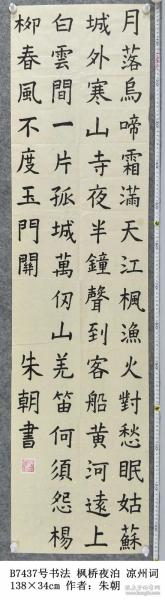 月落烏啼霜滿天江楓漁火對愁眠姑蘇
城外寒山寺夜半鐘聲到客船黄河遠上
白雲間一片孤城萬仞山羌笛何須怨楊
柳春風不度玉門關 朱朝書
B7437号书法 枫桥夜泊 凉州词
138×34cm 作者：朱朝